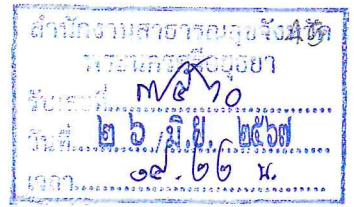 สำนักงานสาธารณสุขจังหวัด
พระนครศรีอยุธยา
รับเลขที่
วันที่ ๒ ๖ มิ.ย. ๒๕๖๗
เวลา ๑๔.๒๒ น.